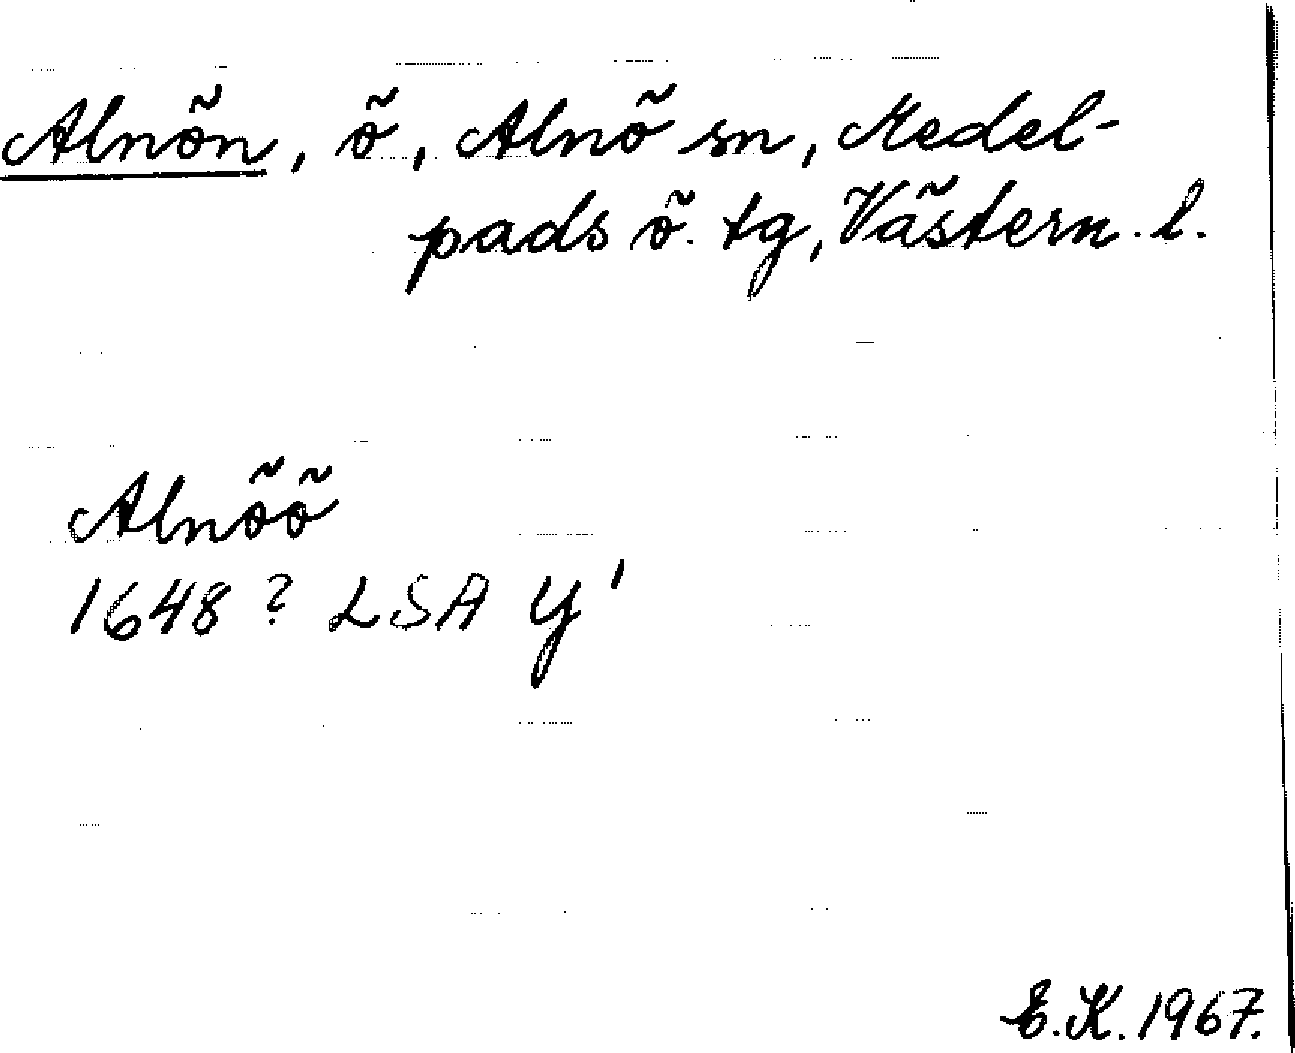 Alnön, ö, Alnö sn, Medel-
pads ö. tg, Västern. l.
Alnöö
1648? LSA Y¹
E.K. 1967.